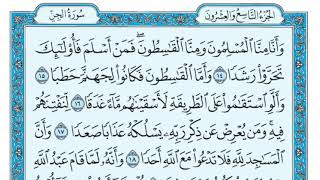 الجزء التاسع والعشرون
سورة الجن
وَأَنَّا مِنَّا الْمُسْلِمُونَ وَمِنَّا الْقَاسِطُونَ ۖ فَمَنْ أَسْلَمَ فَأُولَٰئِكَ
تَحَرَّوْا رَشَدًا ١٤ وَأَمَّا الْقَاسِطُونَ فَكَانُوا لِجَهَنَّمَ حَطَبًا ١٥
وَأَلَّوِ اسْتَقَامُوا عَلَى الطَّرِيقَةِ لَأَسْقَيْنَاهُم مَّاءً غَدَقًا ١٦ لِّنَفْتِنَهُمْ
فِيهِ ۚ وَمَن يُعْرِضْ عَن ذِكْرِ رَبِّهِ يَسْلُكْهُ عَذَابًا صَعَدًا ١٧ وَأَنَّ
الْمَسَاجِدَ لِلَّهِ فَلَا تَدْعُوا مَعَ اللَّهِ أَحَدًا ١٨ وَأَنَّهُ لَمَّا قَامَ عَبْدُ اللَّهِ